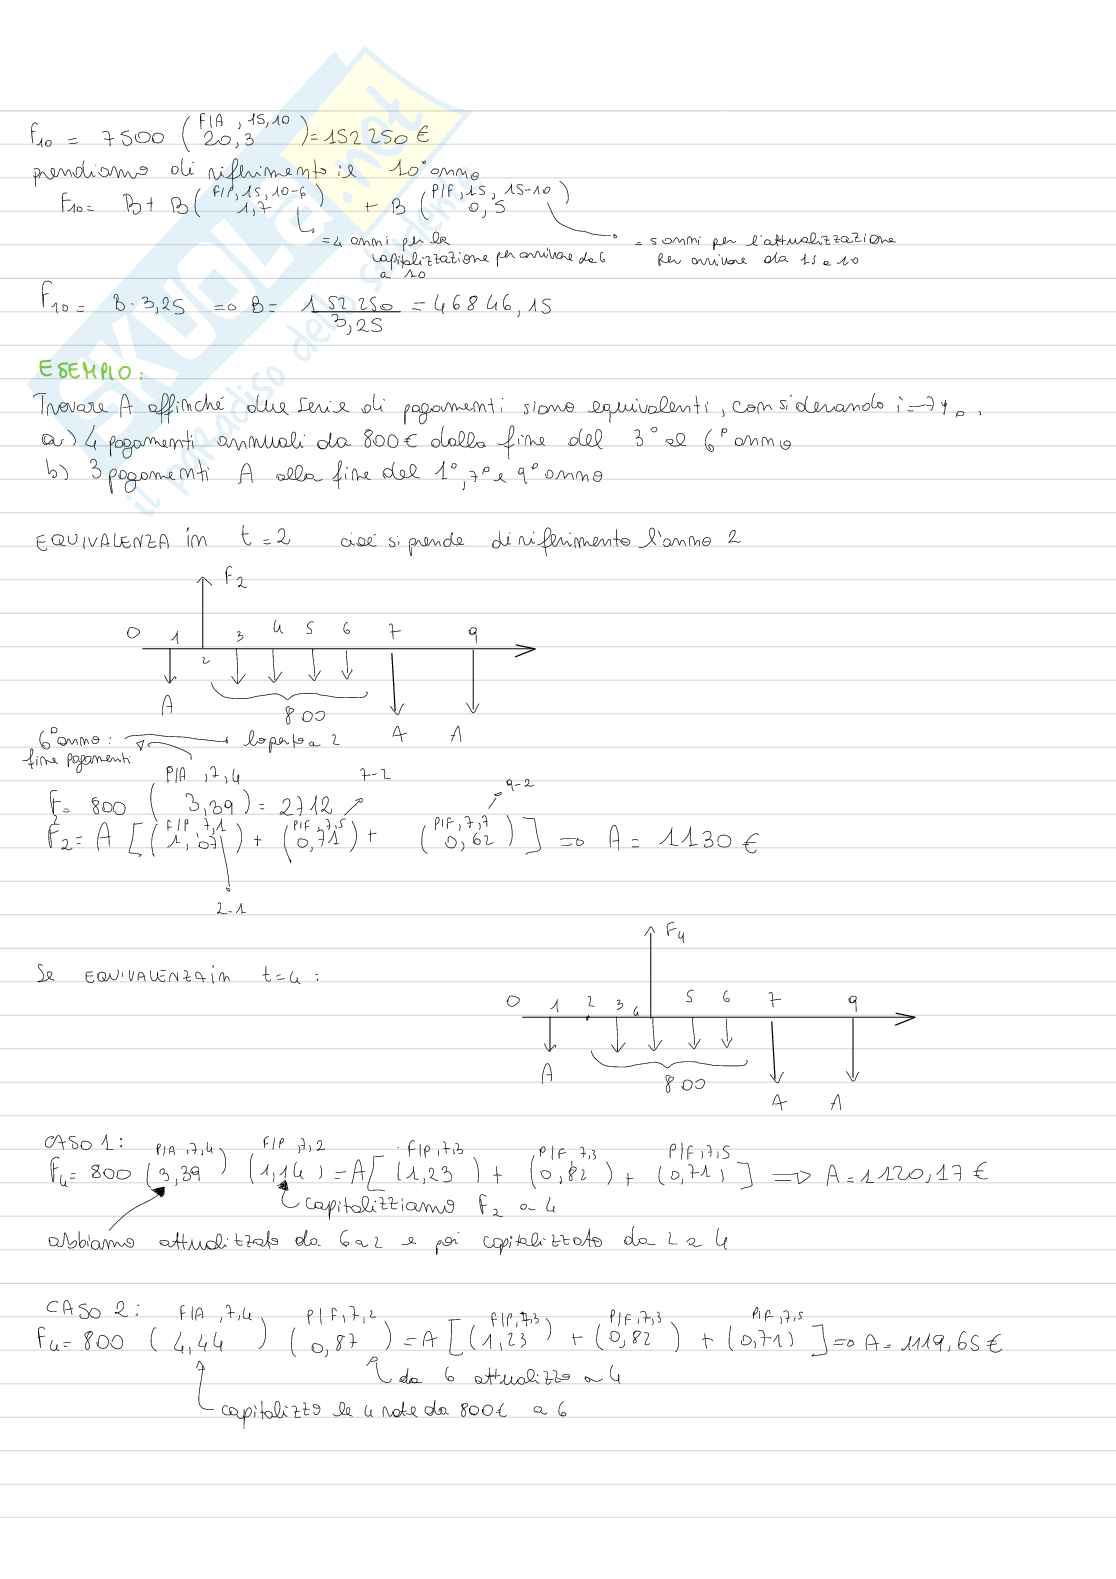 F10 = 7500 ( F|A, 15, 10 20,3 ) = 152250 €
prendiamo di riferimento il 10° anno
F10 = B + B ( F/P, 15, 10-6 1,7 ) + B ( P/F, 15, 15-10 0,5 )
= 4 anni per la capitalizzazione per arrivare da 6 a 10
= 5 anni per l'attualizzazione per arrivare da 15 a 10
F10 = B · 3,25 => B = 152250 / 3,25 = 46846,15
ESEMPIO:
Trovare A affinché due serie di pagamenti siano equivalenti, considerando i=7%.
a) 4 pagamenti annuali da 800€ dalla fine del 3° al 6° anno
b) 3 pagamenti A alla fine del 1°, 7° e 9° anno
EQUIVALENZA in t=2 cioè si prende di riferimento l'anno 2
F2
0 1 2 3 4 5 6 7 9
A 800 A A
6° anno: lo porto a 2
fine pagamenti
F2 = 800 ( P/A, 7, 4 3,39 ) = 2712
7-2
9-2
F2 = A [ ( F/P, 7, 1 1,07 ) + ( P/F, 7, 5 0,71 ) + ( P/F, 7, 7 0,62 ) ] => A = 1130 €
2-1
F4
Se EQUIVALENZA in t=4:
0 1 2 3 4 5 6 7 9
A 800 A A
CASO 1:
F4 = 800 ( P/A, 7, 4 3,39 ) ( F/P, 7, 2 1,14 ) = A [ ( F/P, 7, 3 1,23 ) + ( P/F, 7, 3 0,82 ) + ( P/F, 7, 5 0,71 ) ] => A = 1120,17 €
capitalizziamo F2 a 4
abbiamo attualizzato da 6 a 2 e poi capitalizzato da 2 a 4
CASO 2:
F4 = 800 ( F/A, 7, 4 4,44 ) ( P/F, 7, 2 0,87 ) = A [ ( F/P, 7, 3 1,23 ) + ( P/F, 7, 3 0,82 ) + ( P/F, 7, 5 0,71 ) ] => A = 1119,65 €
da 6 attualizzo a 4
capitalizzo le 4 rate da 800€ a 6
SKUOLA.net
il paradiso dello studente